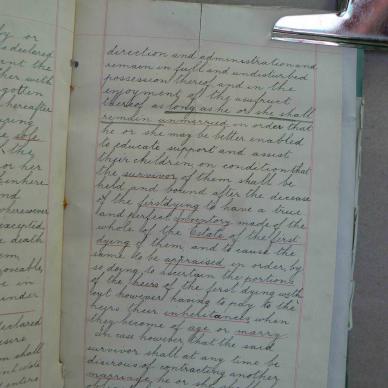 y or
e declared
ent the
her with
gotten
hereafter
uring
e sole
, the
or her
inhere
and
wheresoever
excepted
e death
em
ponsable,
e in
under
eclared
esire
em shall
direction and administration and
remain in full and undisturbed
possession thereof and in the
enjoyment of the usufruct
thereof as long as he or she shall
remain unmarried in order that
he or she may be better enabled
to educate support and assist
their children on condition that
the survivor of them shall be
held and bound after the decease
of the firstdying to have a true
and perfect Inventory made of the
whole of the Estate of the first
dying of them and to cause the
same to be appraised in order by
so doing to ascertain the portions
of the heirs of the first dying with
out however having to pay to the
heirs their inheritances when
they become of age or marry
In case however that the said
survivor shall at any time be
desirous of contracting another
marriage he or she